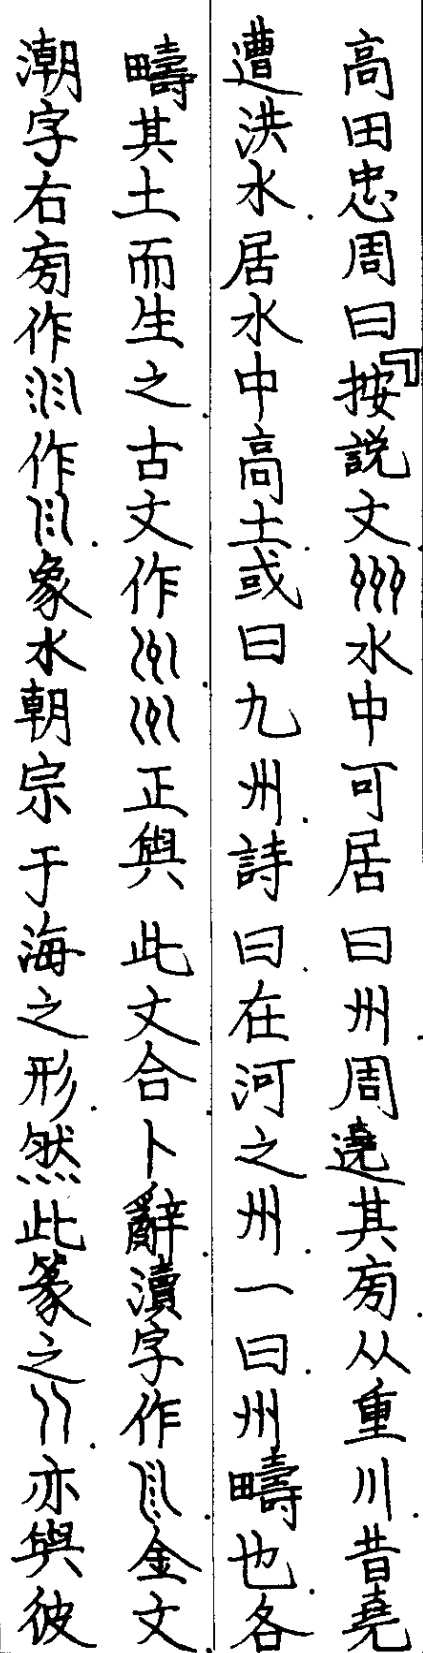 高田忠周曰『按説文水中可居曰州周遶其㫄从重川昔堯
遭洪水居水中高土或曰九州詩曰在河之州一曰州疇也各
疇其土而生之古文作正與此文合卜辭瀆字作金文
潮字右㫄作作象水朝宗于海之形然此篆之亦與彼